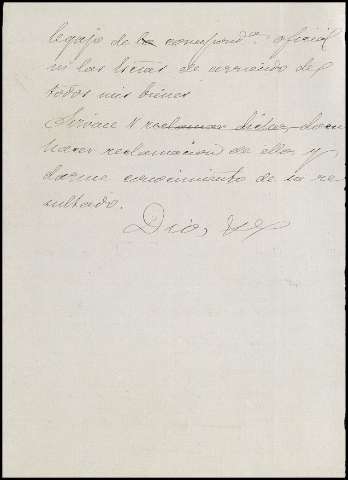 legajo de la correspond.ª oficial
ni las listas de arriendo de
todos mis bienes
Sírvase V reclamar dichas docu
hacer reclamacion de ellos y
darme conocimiento de su re-
sultado.
Dios,